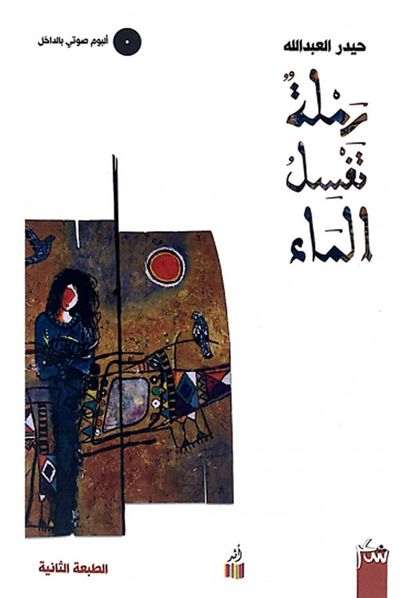 حيدر العبدالله
ألبوم صوتي بالداخل
رَمْلَةٌ
تَغْسِلُ
المَاء
الطبعة الثانية
أثر